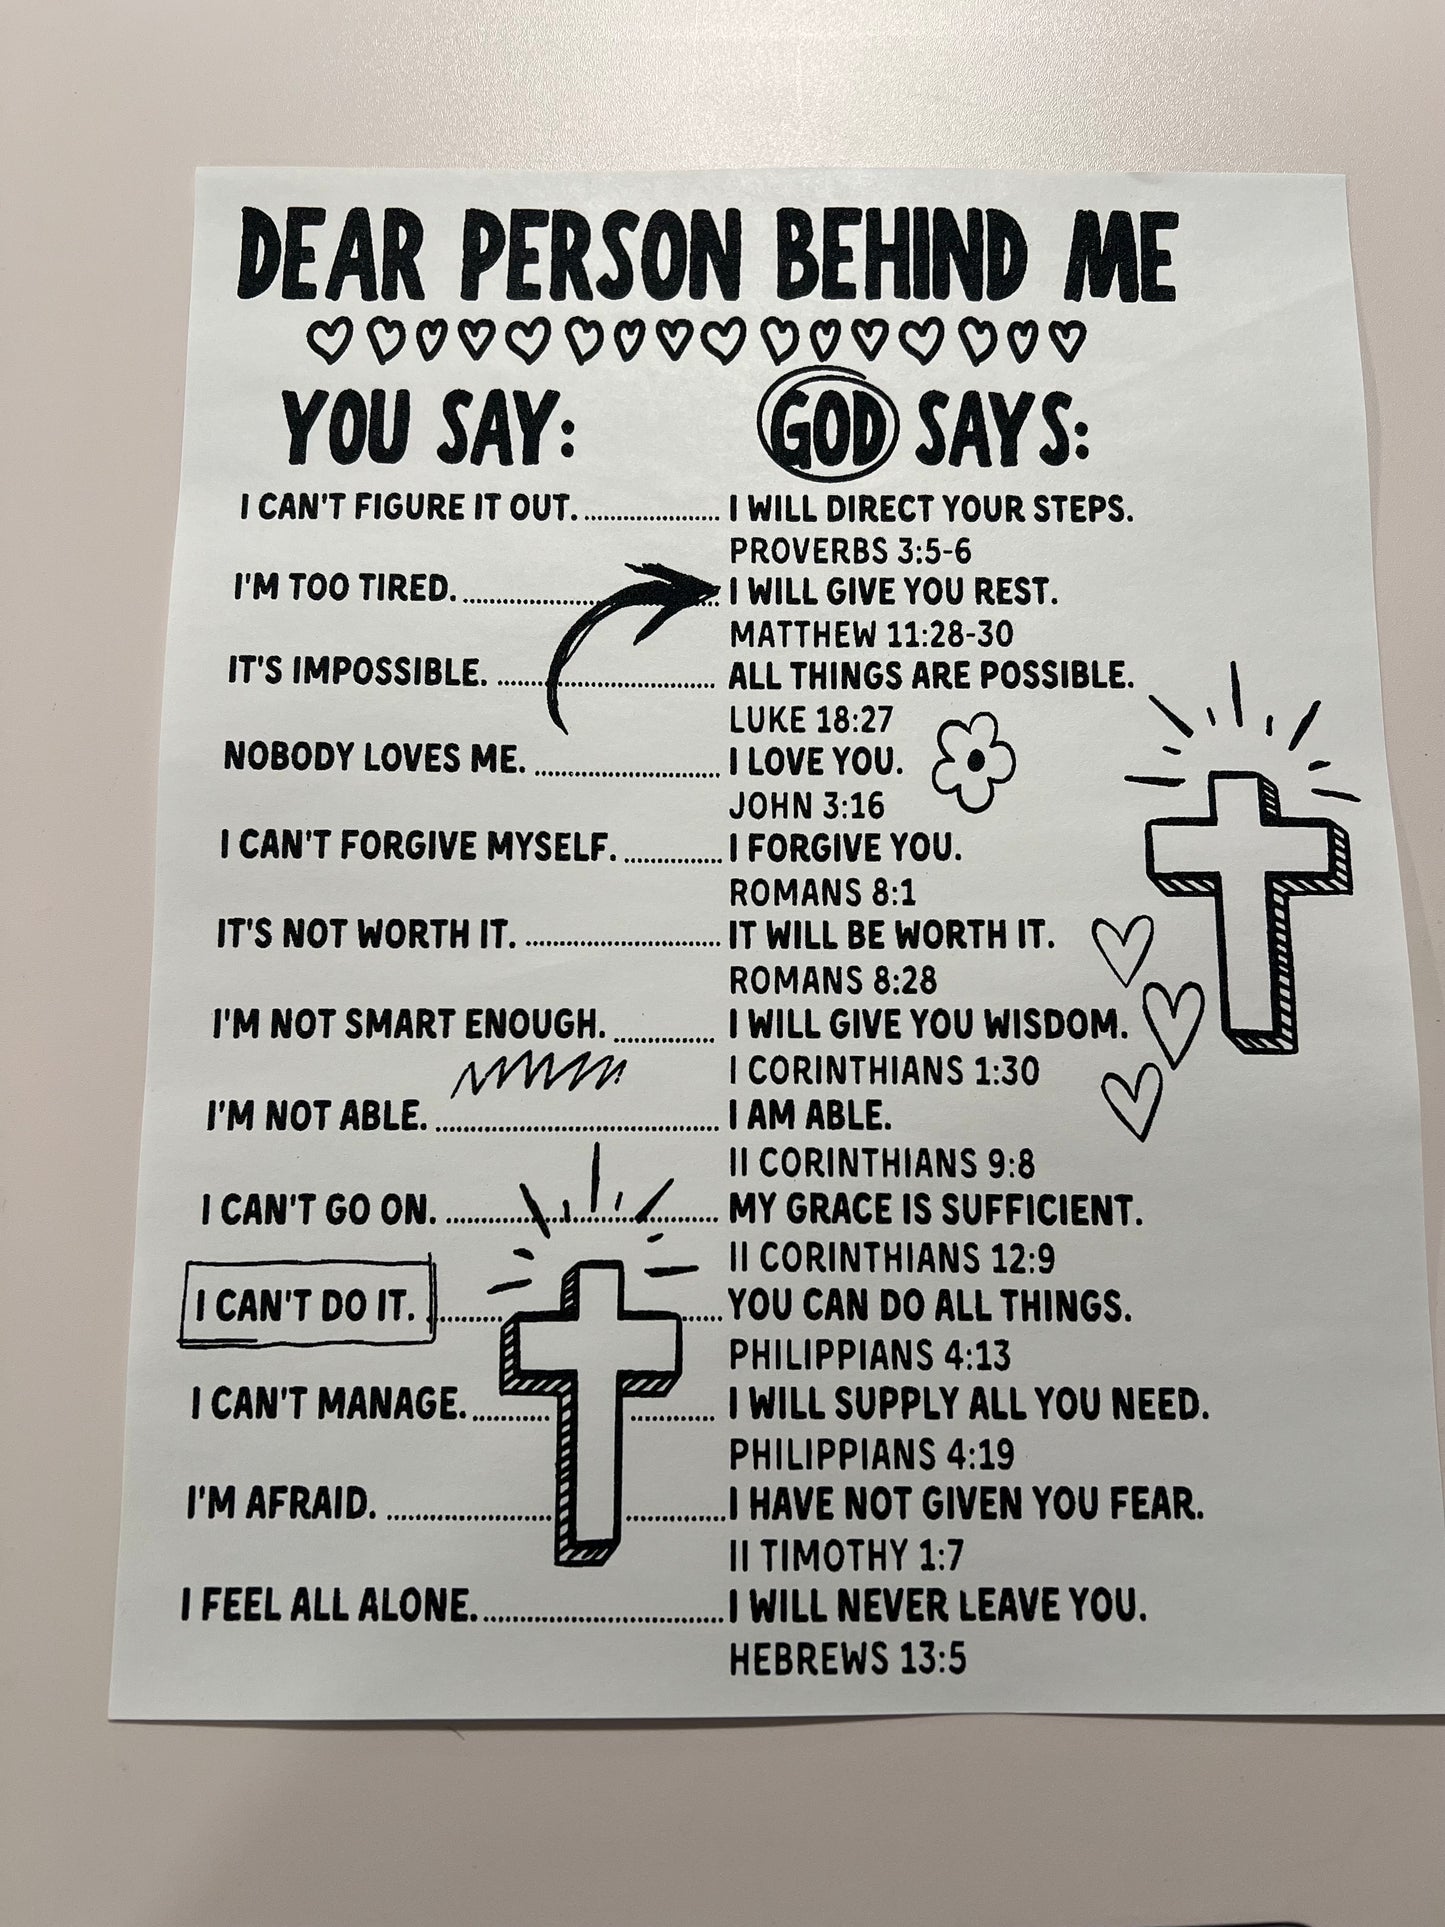 DEAR PERSON BEHIND ME
YOU SAY: GOD SAYS:
I CAN'T FIGURE IT OUT. .................... I WILL DIRECT YOUR STEPS.
PROVERBS 3:5-6
I'M TOO TIRED. .................... I WILL GIVE YOU REST.
MATTHEW 11:28-30
IT'S IMPOSSIBLE. .................... ALL THINGS ARE POSSIBLE.
LUKE 18:27
NOBODY LOVES ME. .................... I LOVE YOU.
JOHN 3:16
I CAN'T FORGIVE MYSELF. .................... I FORGIVE YOU.
ROMANS 8:1
IT'S NOT WORTH IT. .................... IT WILL BE WORTH IT.
ROMANS 8:28
I'M NOT SMART ENOUGH. .................... I WILL GIVE YOU WISDOM.
I CORINTHIANS 1:30
I'M NOT ABLE. .................... I AM ABLE.
II CORINTHIANS 9:8
I CAN'T GO ON. .................... MY GRACE IS SUFFICIENT.
II CORINTHIANS 12:9
I CAN'T DO IT. .................... YOU CAN DO ALL THINGS.
PHILIPPIANS 4:13
I CAN'T MANAGE. .................... I WILL SUPPLY ALL YOU NEED.
PHILIPPIANS 4:19
I'M AFRAID. .................... I HAVE NOT GIVEN YOU FEAR.
II TIMOTHY 1:7
I FEEL ALL ALONE. .................... I WILL NEVER LEAVE YOU.
HEBREWS 13:5